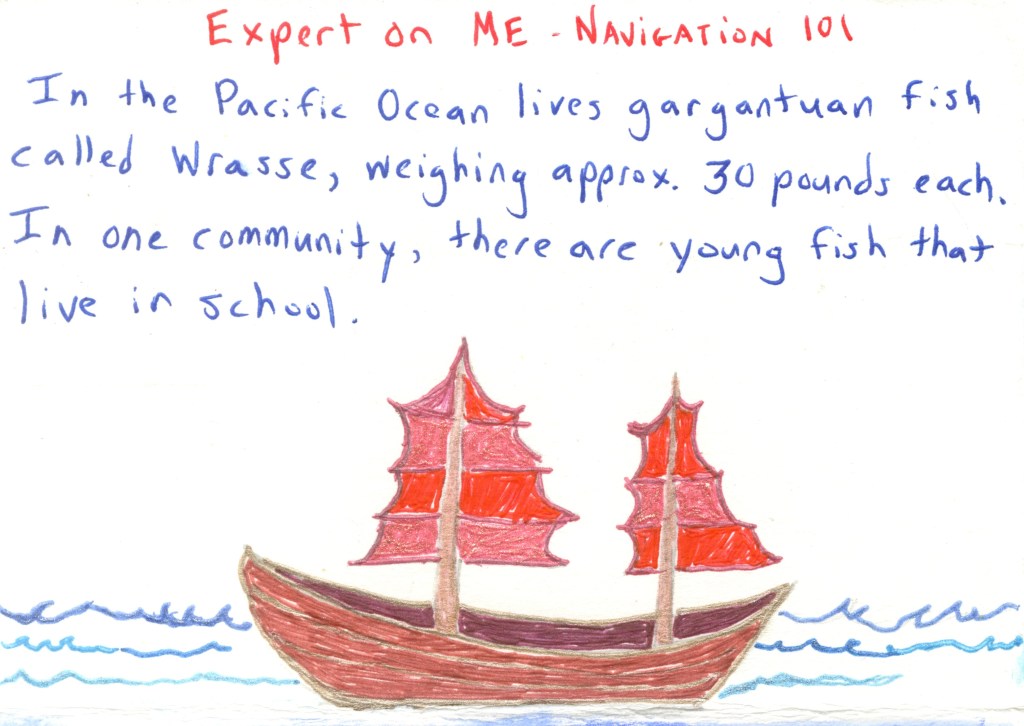 Expert on ME - NAVIGATION 101
In the Pacific Ocean lives gargantuan fish
called Wrasse, weighing approx. 30 pounds each.
In one community, there are young fish that
live in school.